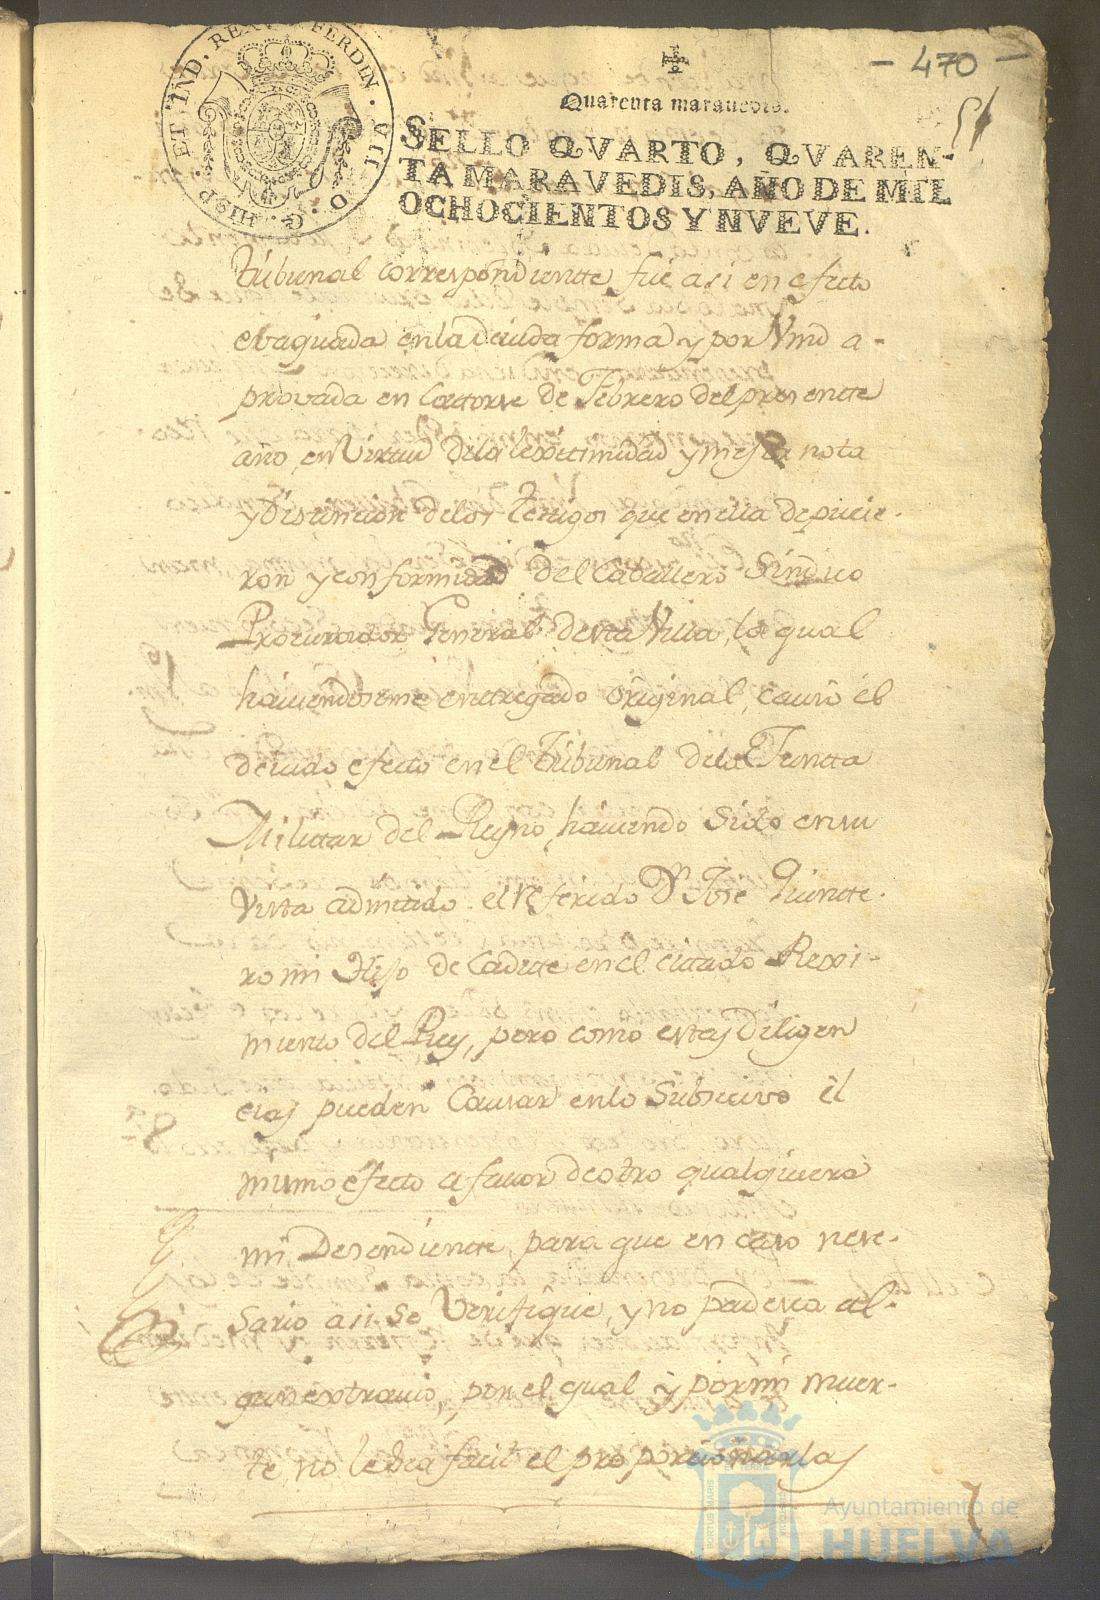 - 470 -
51
Quarenta maravedis.
SELLO QVARTO, QVAREN-
TA MARAVEDIS, AÑO DE MIL
OCHOCIENTOS Y NVEVE.
HISP. ET IND. REX FERDIN. VII D. G.
tribunal correspondiente, fue asi en efecto
ebaquada en la devida forma y por Vmd a-
provada en Catorse de Febrero del presente
año, en Virtud dela lexitimidad y mejor nota
y Distincion delos Testigos que en ella depucie-
ron y conformidad del Caballero Sindico
Procurador General desta Villa, la qual
haviendoseme entregado original, causó el
devido efecto en el Tribunal dela Junta
Militar del Reyno, haviendo Sido en su
Vista admitido el referido Dn. Jose Quinte-
ro mi Hijo de Cadete en el citado Rexi-
miento del Rey, pero como estas Diligen
cias pueden Causar enlo Subsecivo el
mismo efecto a favor de otro qualquiera
mi Desendiente, para que en caso nese-
sario asi se Verifique, y no padesca al-
gun extravio, por el qual y por mi muer-
te no le sea facil el proporcionarlas
Ayuntamiento de
HUELVA